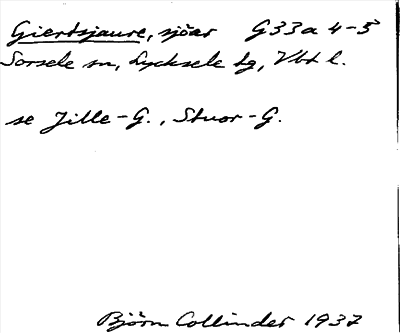 Giertsjaure, sjöar G33a 4-5
Sorsele sn, Lycksele tg, Vbt l.
se Jille-G., Stuor-G.
Björn Collinder 1937